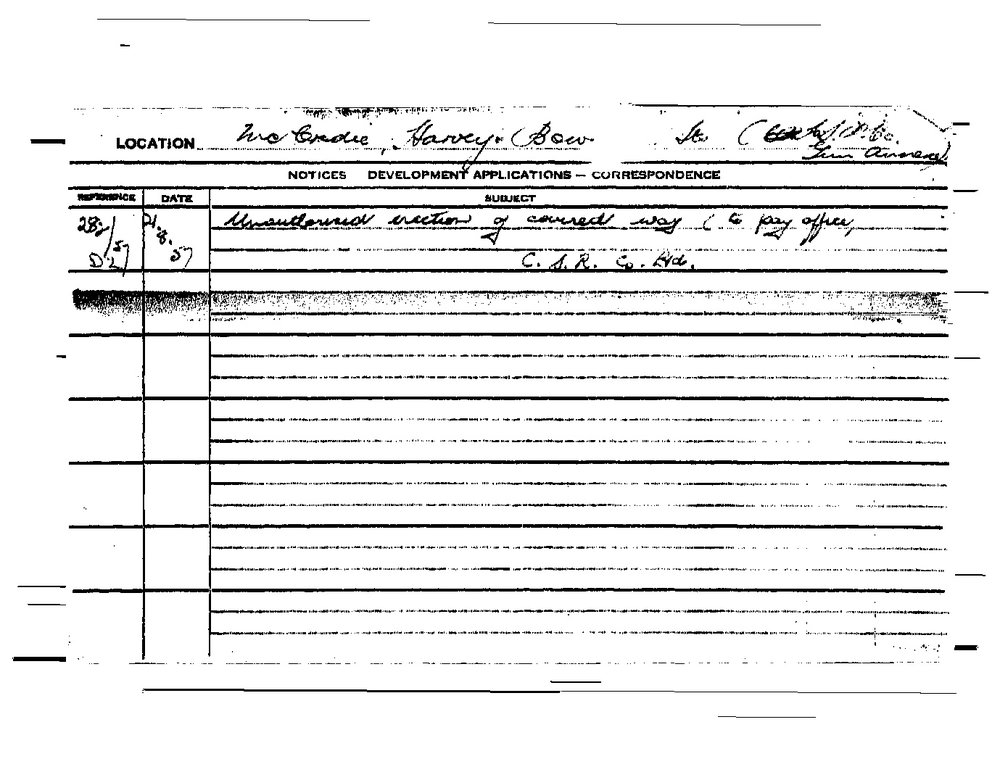 LOCATION McCredie, Harvey & Bow Sts
NOTICES DEVELOPMENT APPLICATIONS — CORRESPONDENCE
REFERENCE DATE SUBJECT
282/57 21.8.57 Unauthorised erection of covered way (to pay office,
D27
C. S. R. Co. Ltd.